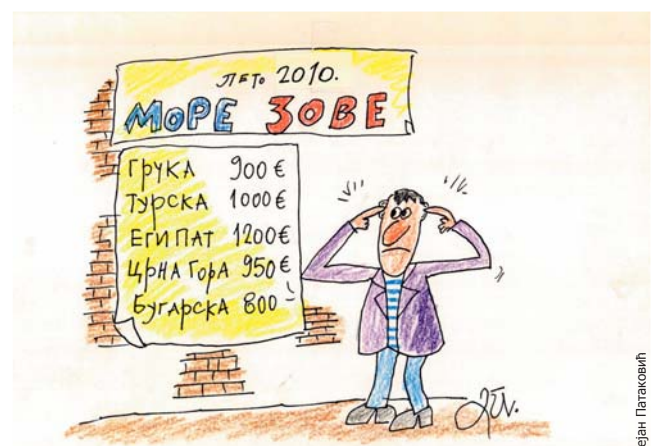 ЛЕТО 2010.
МОРЕ ЗОВЕ
ГРЧКА 900 €
ТУРСКА 1000 €
ЕГИПАТ 1200 €
ЦРНА ГОРА 950 €
БУГАРСКА 800
ејан Патаковић